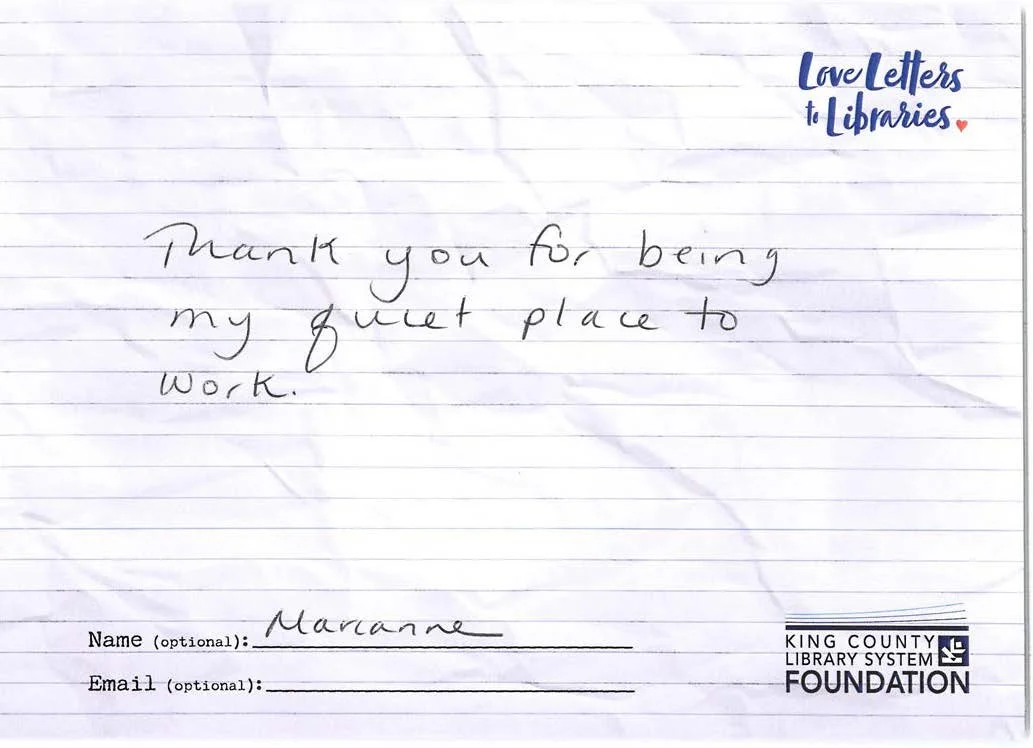 Love Letters
to Libraries
Thank you for being
my quiet place to
work.
Name (optional): Marianne
Email (optional):
KING COUNTY
LIBRARY SYSTEM
FOUNDATION